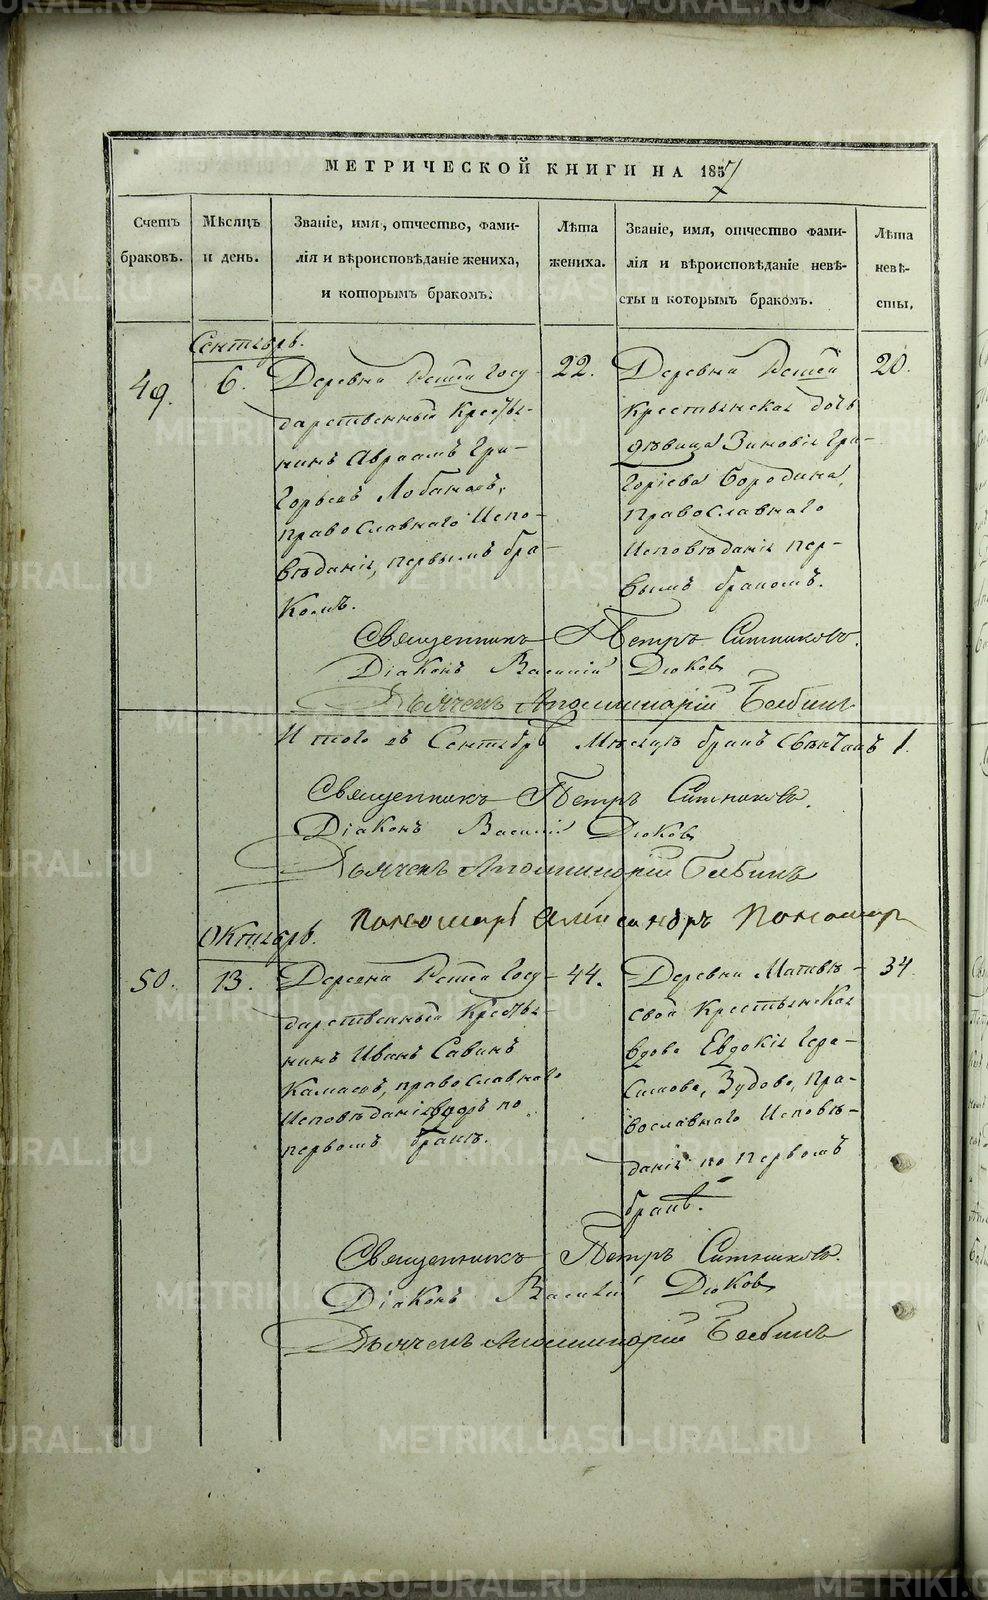 METRIKI.GASO-URAL.RU
МЕТРИЧЕСКОЙ КНИГИ НА 1857
Счетъ браковъ.
Мѣсяцъ и день.
Званіе, имя, отчество, фами-
лія и вѣроисповѣданіе жениха,
и которымъ бракомъ.
Лѣта жениха.
Званіе, имя, отчество фами-
лія и вѣроисповѣданіе невѣ-
сты и которымъ бракомъ.
Лѣта невѣ-
сты.
Сентябрь.
49.
6.
Деревни Госу-
дарственный Крестья-
нинъ Авраамъ Гри-
горьевъ Лобановъ,
православнаго Испо-
вѣданія, первымъ бра-
комъ.
22.
Деревни
Крестьянская дочь
дѣвица Зиновія Гри-
горіева Бородина,
Православнаго
Исповѣданія пер-
вымъ бракомъ.
20.
Священникъ Петръ Ситниковъ.
Діаконъ Василій Дюковъ
Дьячекъ Аполлинарій
Итого въ Сентябрѣ Мѣсяцѣ бракъ 1.
Священникъ Петръ Ситниковъ.
Діаконъ Василій Дюковъ
Дьячекъ Аполлинарій
Пономарь Александръ Пономарев
Октябрь.
50.
13.
Деревни Госу-
дарственный Крестья-
нинъ Иванъ Савинъ
православнаго
Исповѣданія вдовъ по
первомъ бракѣ.
44.
Деревни Матвѣе-
вой Крестьянская
вдова Евдокія Гера-
симова, Зудова, Пра-
вославнаго Исповѣ-
данія по первомъ
бракѣ.
34.
Священникъ Петръ Ситниковъ.
Діаконъ Василій Дюковъ
Дьячекъ Аполлинарій